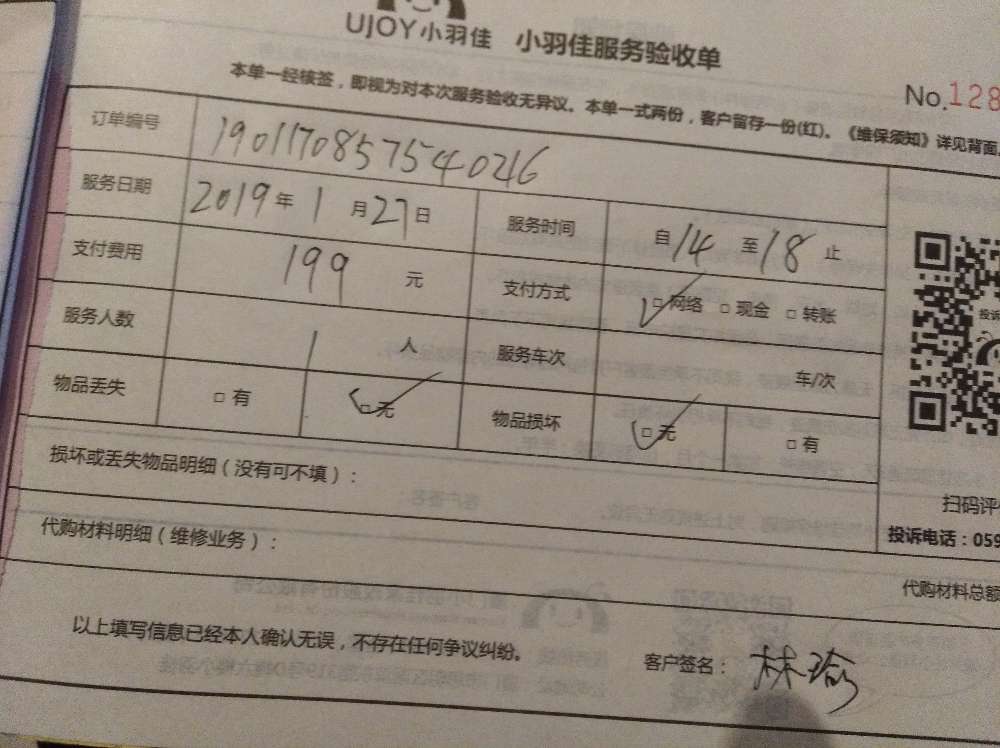 UJOY小羽佳 小羽佳服务验收单
No.128
本单一经核签，即视为对本次服务验收无异议。本单一式两份，客户留存一份(红)。《维保须知》详见背面。
订单编号 1901170857540216
服务日期 2019年1月27日 服务时间 自14至18止
支付费用 199元 支付方式 □网络 □现金 □转账
服务人数 1人 服务车次 车/次
物品丢失 □有 □无 物品损坏 □无 □有
投诉
损坏或丢失物品明细（没有可不填）：
扫码评
投诉电话：059
代购材料明细（维修业务）：
代购材料总额
以上填写信息已经本人确认无误，不存在任何争议纠纷。
客户签名：林瑜